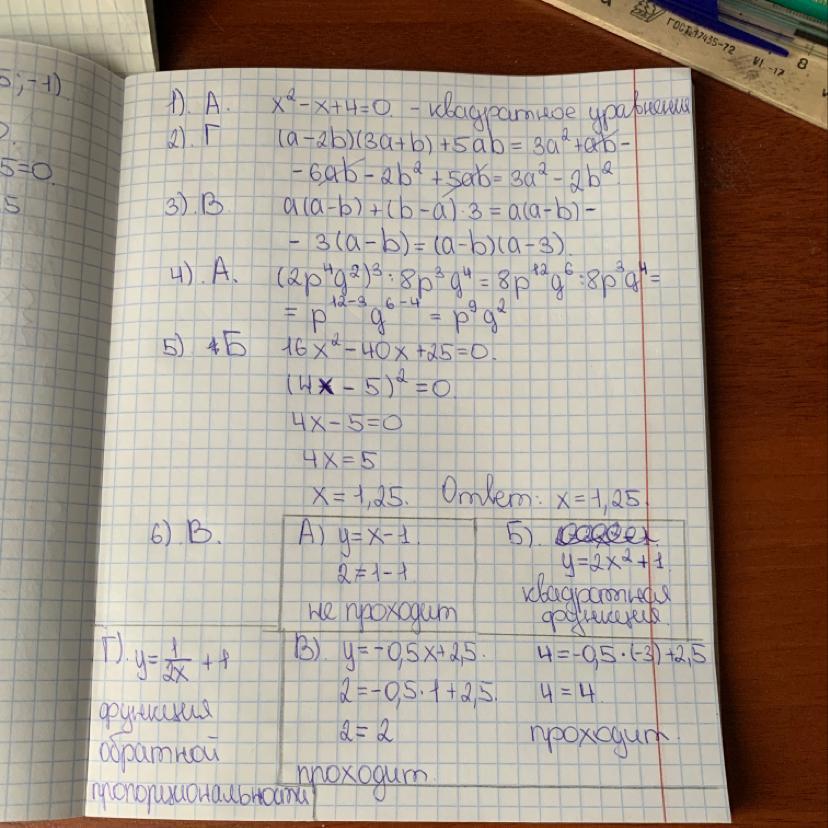 5; -1)
5=0.
5
ГОСТ 17435-72
VI -17
8
1). А. x² - x + 4 = 0. - квадратное уравнения
2). Г (a-2b)(3a+b) + 5ab = 3a² + ab -
- 6ab - 2b² + 5ab = 3a² - 2b².
3). В. a(a-b) + (b-a)·3 = a(a-b) -
- 3(a-b) = (a-b)(a-3).
4). А. (2p⁴g²)³ : 8p³g⁴ = 8p¹²g⁶ : 8p³g⁴ =
= p¹²⁻³ g⁶⁻⁴ = p⁹g²
5) Б 16x² - 40x + 25 = 0.
(4x - 5)² = 0.
4x - 5 = 0
4x = 5
x = 1,25. Ответ: x = 1,25.
6). В.
А) y = x - 1.
2 ≠ 1 - 1
не проходит
Б).
y = 2x² + 1.
квадратная
функция.
Г). y = 1/2x + 1
функция
обратной
пропорциональности
В). y = -0,5x + 2,5.
2 = -0,5·1 + 2,5.
2 = 2
проходит.
4 = -0,5·(-3) + 2,5
4 = 4.
проходит.